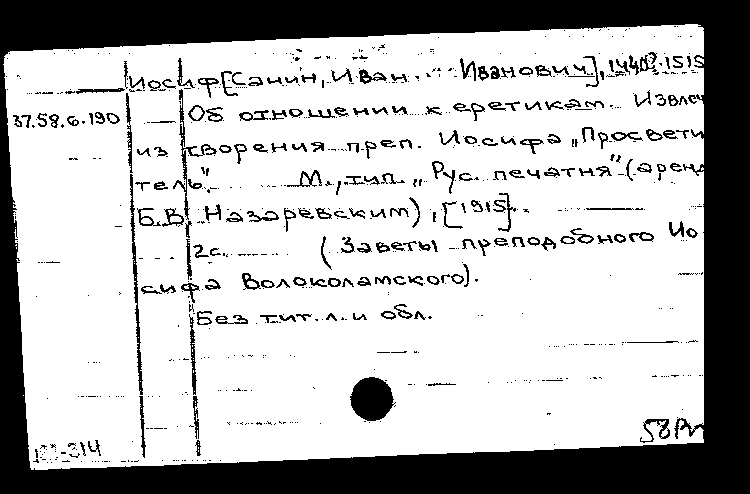 Иосиф[Санин, Иван Иванович], 1440?-1515
37.58.6.190
Об отношении к еретикам. Извлеч
из творения преп. Иосифа „Просвети
тель". М., тип. „Рус. печатня" (аренд
Б.В. Назаревским), [1915].
2с. (Заветы преподобного Ио
сифа Волоколамского).
Без тит.л. и обл.